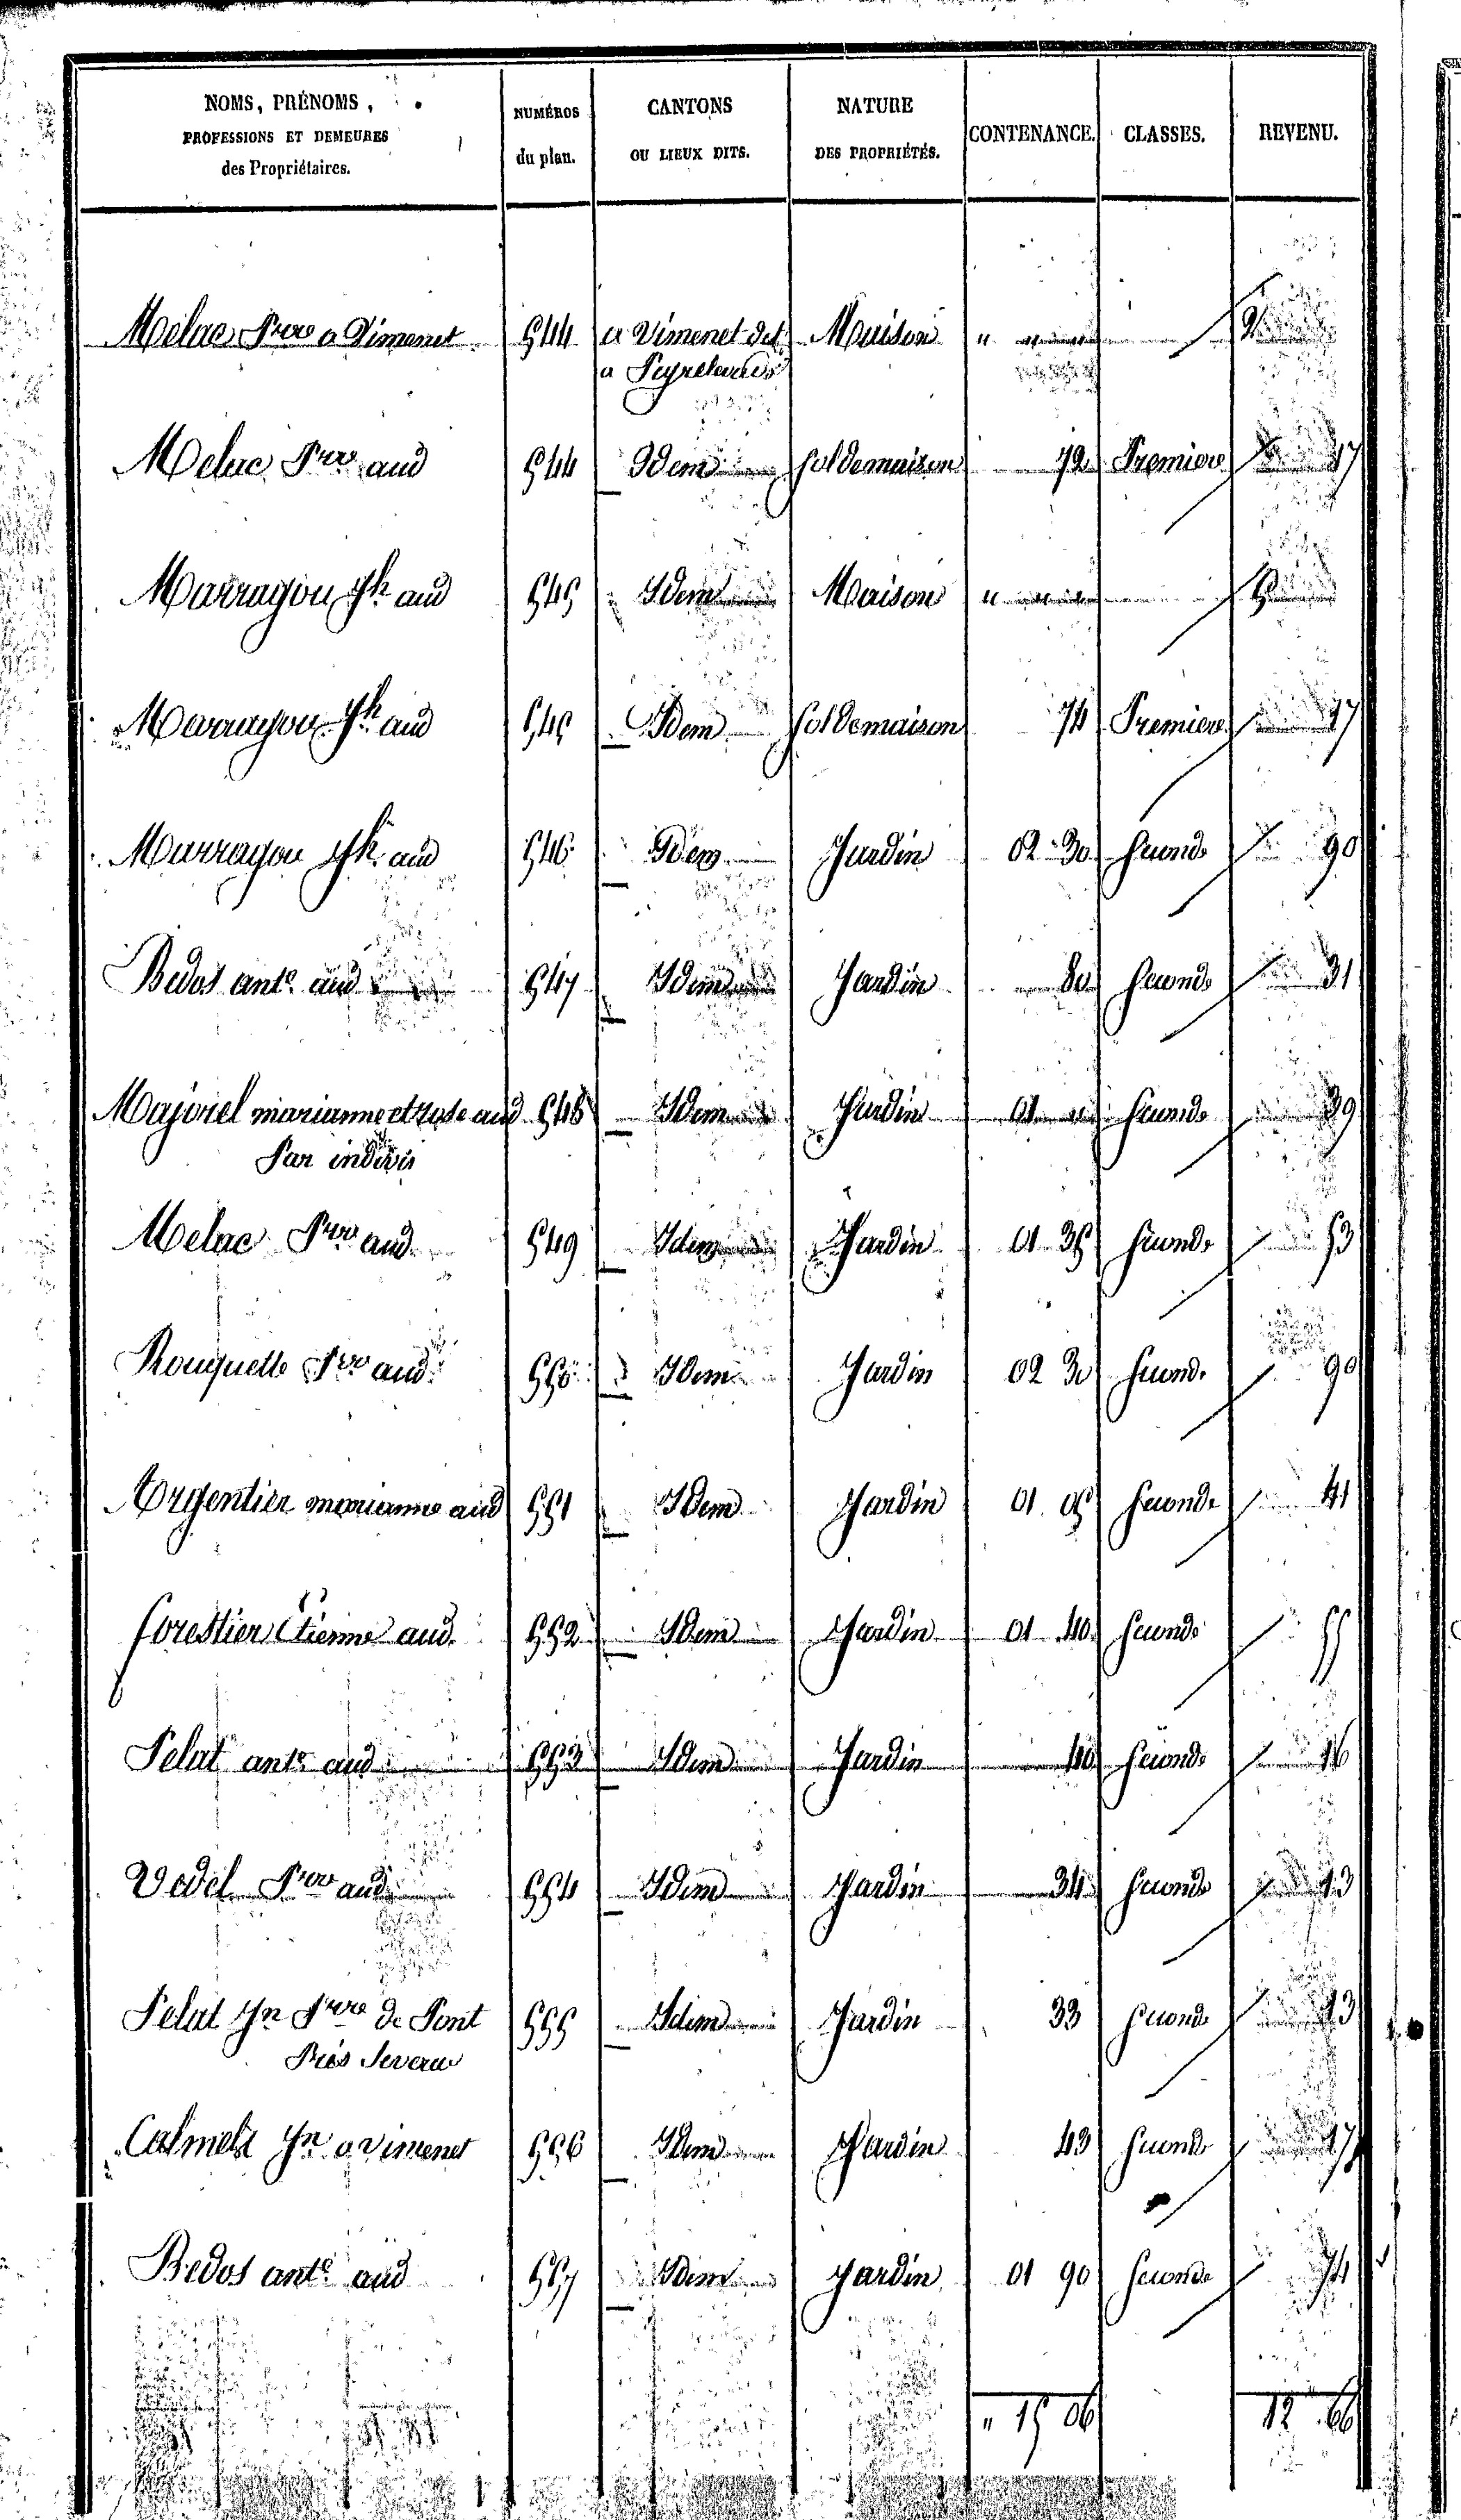 NOMS, PRÉNOMS, PROFESSIONS ET DEMEURES des Propriétaires. NUMÉROS du plan. CANTONS OU LIEUX DITS. NATURE DES PROPRIÉTÉS. CONTENANCE. CLASSES. REVENU.
Melac Pre a Vimenet 544 a Vimenet dit Maison "
a
Melac Pre aud 544 Idem Sol de maison 72 Premiere 17
Marragou Jh aud 545 Idem Maison "
Marragou Jh aud 545 Idem Sol de maison 74 Premiere 17
Marragou Jh aud 546 Idem Jardin 02 30 Seconde 90
Bedos ante aud 547 Idem Jardin 80 Seconde 31
Majorel marianne et rose aud 548 Idem Jardin 01 Seconde 39
Par indivis
Melac Pre aud 549 Idem Jardin 01 35 Seconde 53
Rouquette Pre aud 550 Idem Jardin 02 30 Seconde 90
Argentier marianne aud 551 Idem Jardin 01 05 Seconde 41
forestier Etienne aud 552 Idem Jardin 01 40 Seconde 55
Pelat ante aud 553 Idem Jardin 40 Seconde 16
Vedel Pre aud 554 Idem Jardin 34 Seconde 13
Pelat Jn Pre de Pont 555 Idem Jardin 33 Seconde 13
Près Severac
Calmels Jn a vimenet 556 Idem Jardin 43 Seconde 17
Bedos ante aud 557 Idem Jardin 01 90 Seconde 74
" 15 06 12 66